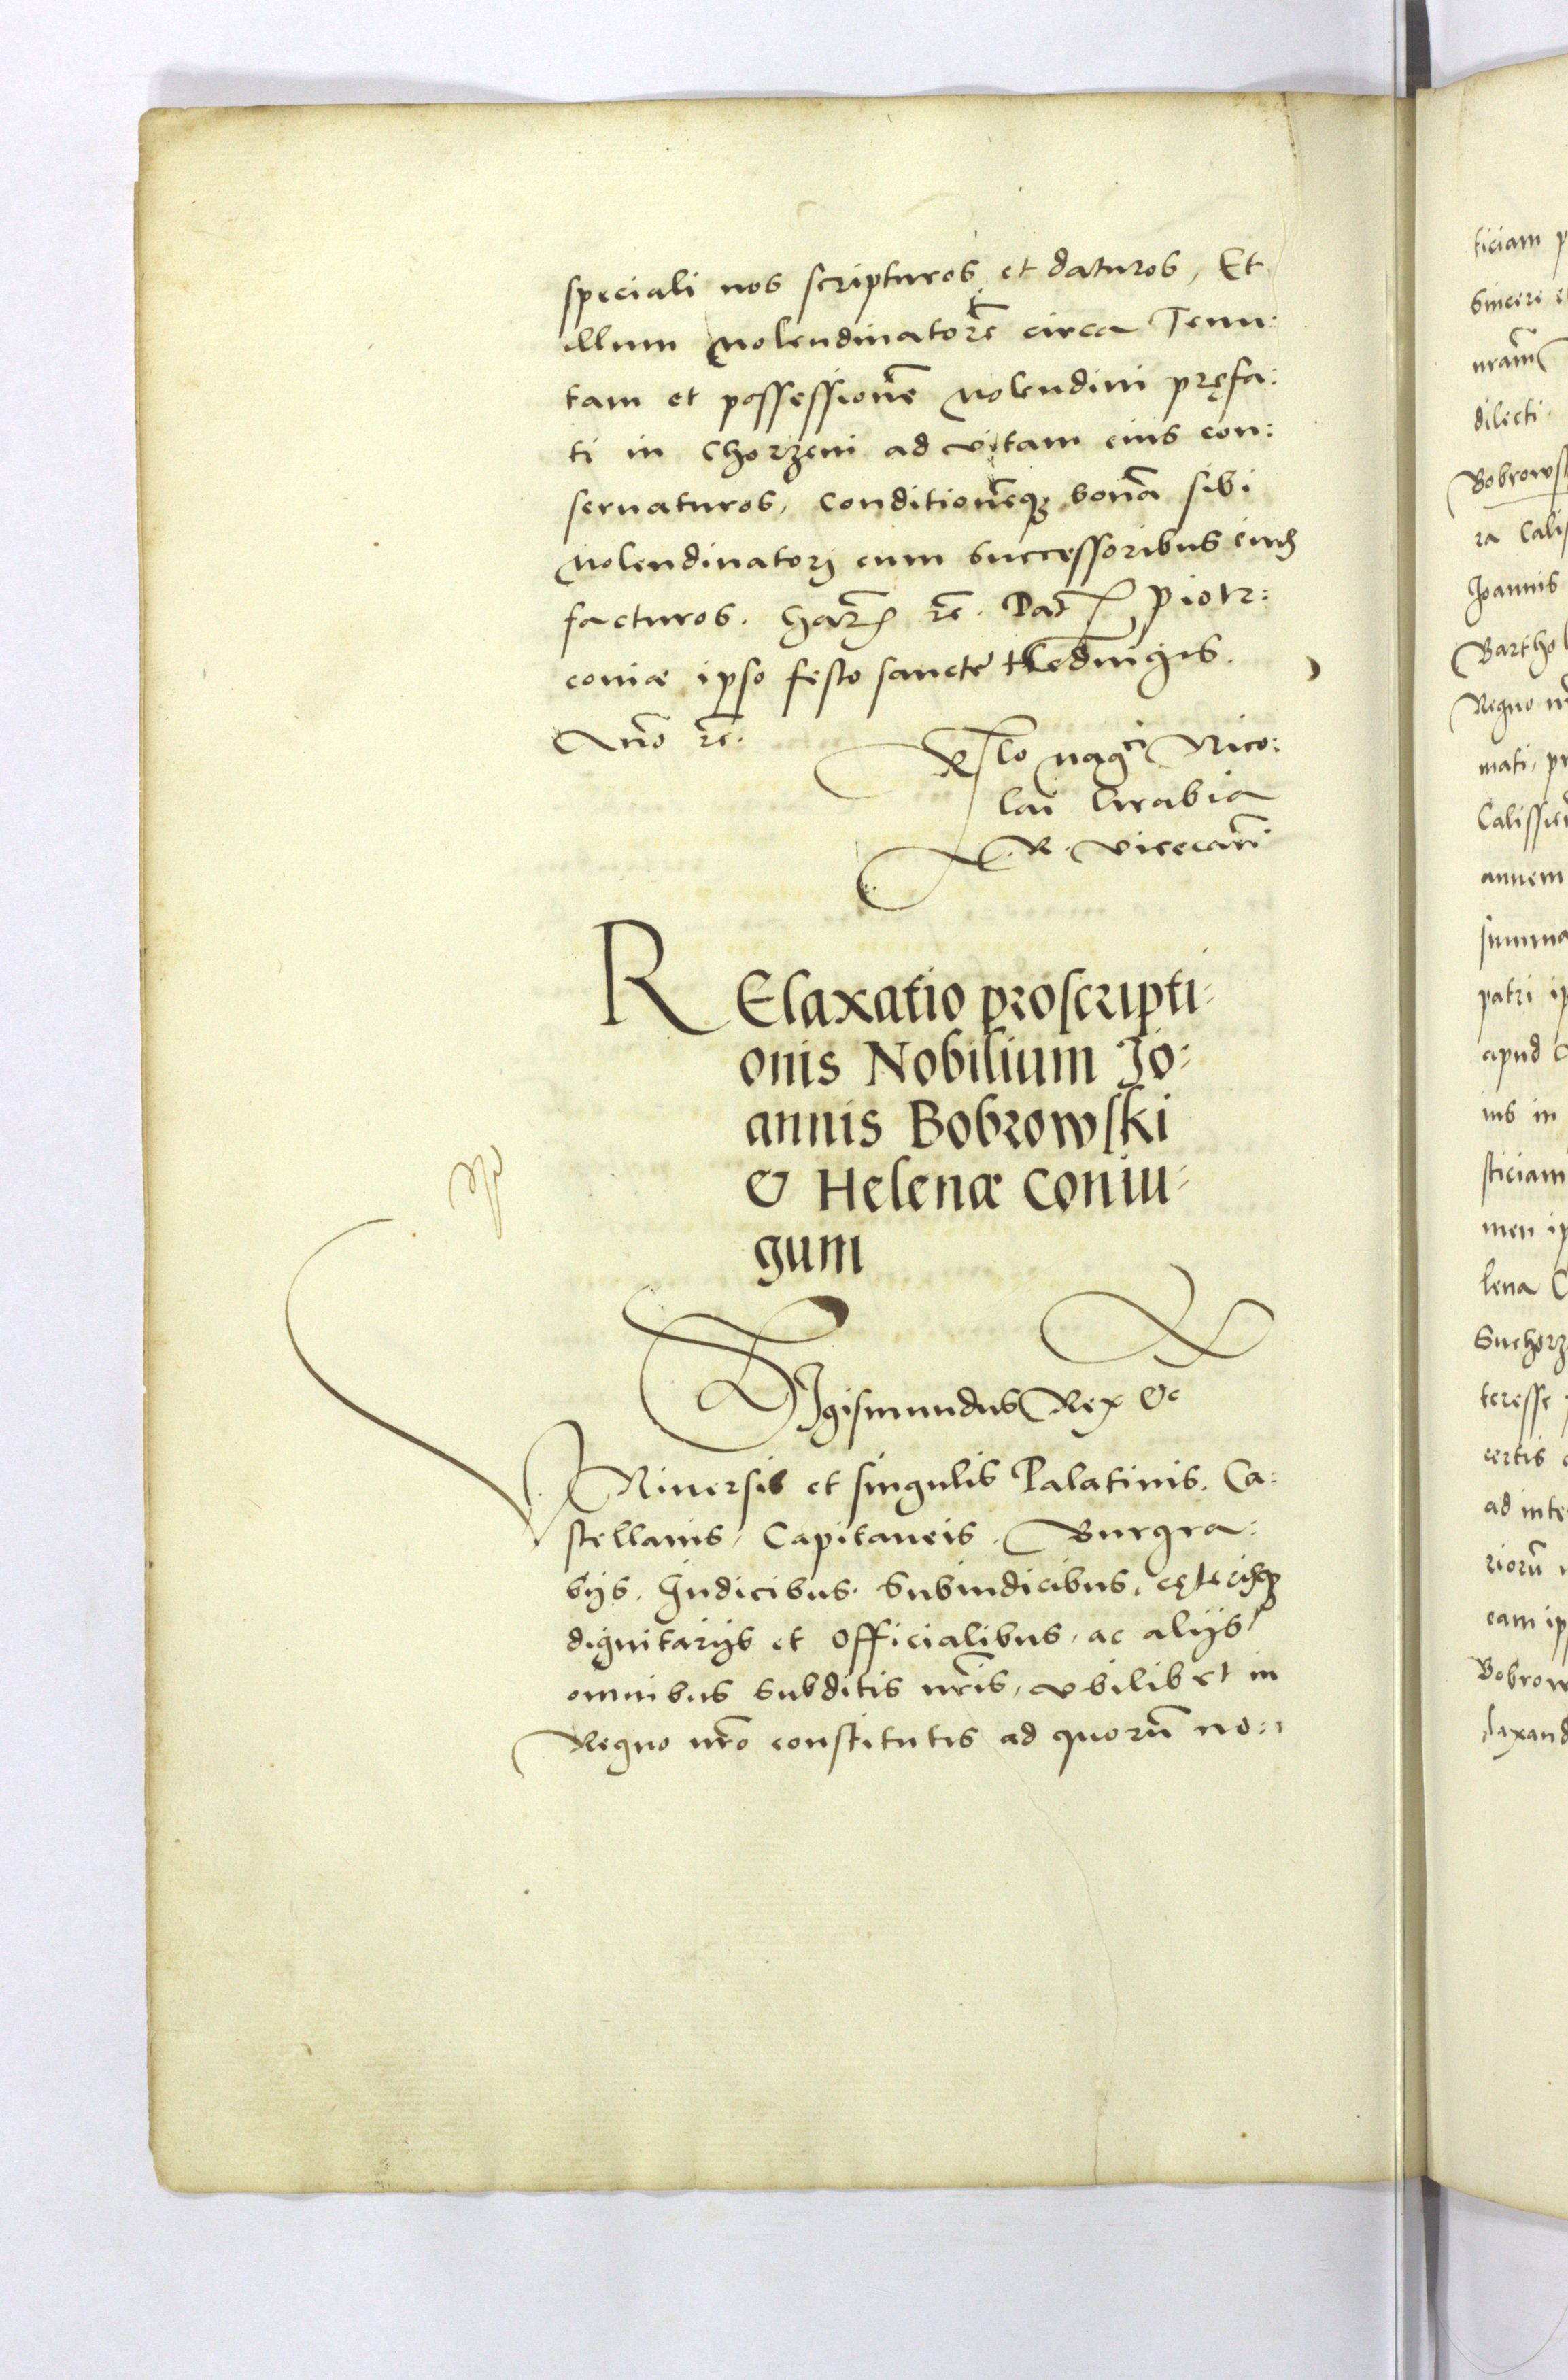 speciali nos scripturos et daturos, Et
illum Molendinatorē circa Tenu:
tam et possessionē Molendini pręfa:
ti in Chorzeni ad vitam eius con:
seruaturos, Conditionēqȝ bonā sibi
Molendinatorj cum Successoribus
facturos. harꝝ rc̄. Dat̄ Piotr:
couiæ ipso festo sancte Hedwigis.
Anno rc̄.
Rlo magci Nico:
lai Grabia
R. Vicecan̄
RElaxatio proscripti:
onis Nobilium Jo:
annis Bobrowski
& Helenæ coniu:
gum
SJgismundus Rex &c
VNiuersis et singulis Palatinis. Ca:
stellanis, Capitaneis. Burgra:
bijs. Iudicibus. Subiudicibus, cęterisqȝ
dignitarijs et Officialibus, ac alijs
omnibus Subditis nr̄is, vbilibet in
Regno nr̄o constitutis ad quorū no:
ticiam p
Sincere e
nram
dilecti
Bobrowsk
ra Calis
Joannis
Barthol
Regno nr̄
mati, pr
Calissien
annem
summa
patri ip
apud
ius in
sticiam
men ip
lena C
Suchorz
teresse
certis
ad inte
riorū
eam ip
Bobrow
laxand